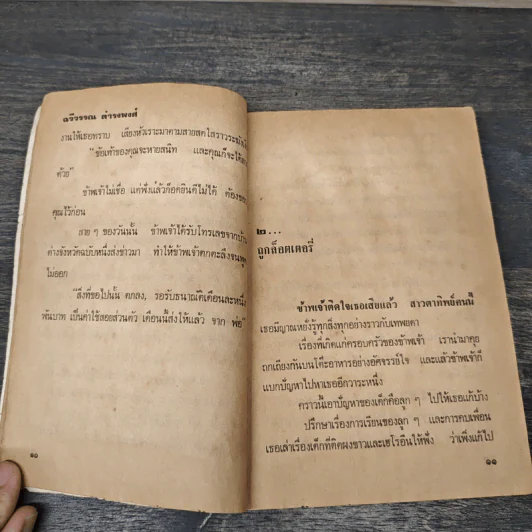 ฉวีวรรณ สำรงพงส์
งานให้เธอทราบ เสียงหัวเราะมาตามสายสดใสราวระฆัง
"ข้อเท้าของคุณจะหายสนิท และคุณก็จะได้
ด้วย"
ข้าพเจ้าไม่เชื่อ แต่ฟังแล้วก็อดยินดีไม่ได้ ต้องขอ
คุณไว้ก่อน
สาย ๆ ของวันนั้น ข้าพเจ้าได้รับโทรเลขจากบ้าน
ต่างจังหวัดฉบับหนึ่งส่งข่าวมา ทำให้ข้าพเจ้าตกตะลึงจนพูด
ไม่ออก
"สิ่งที่ขอไปนั้น ตกลง, รอรับธนาณัติเดือนละหนึ่ง
พันบาท เป็นค่าใช้สอยส่วนตัว เดือนนี้ส่งให้แล้ว จาก พ่อ"
๑๐
๒...
ถูกล็อตเตอรี่
ข้าพเจ้าติดใจเธอเสียแล้ว สาวตาทิพย์คนนี้
เธอมีญาณหยั่งรู้ทุกสิ่งทุกอย่างราวกับเทพยดา
เรื่องที่เกิดแก่ครอบครัวของข้าพเจ้า เรานำมาคุย
ถกเถียงกันบนโต๊ะอาหารอย่างอัศจรรย์ใจ และแล้วข้าพเจ้าก็
แบกปัญหาไปหาเธออีกวาระหนึ่ง
คราวนี้เอาปัญหาของเด็กคือลูก ๆ ไปให้เธอแก้บ้าง
ปรึกษาเรื่องการเรียนของลูก ๆ และการคบเพื่อน
เธอเล่าเรื่องเด็กที่ติดผงขาวและเฮโรอีนให้ฟัง ว่าเพิ่งแก้ไป
๑๑